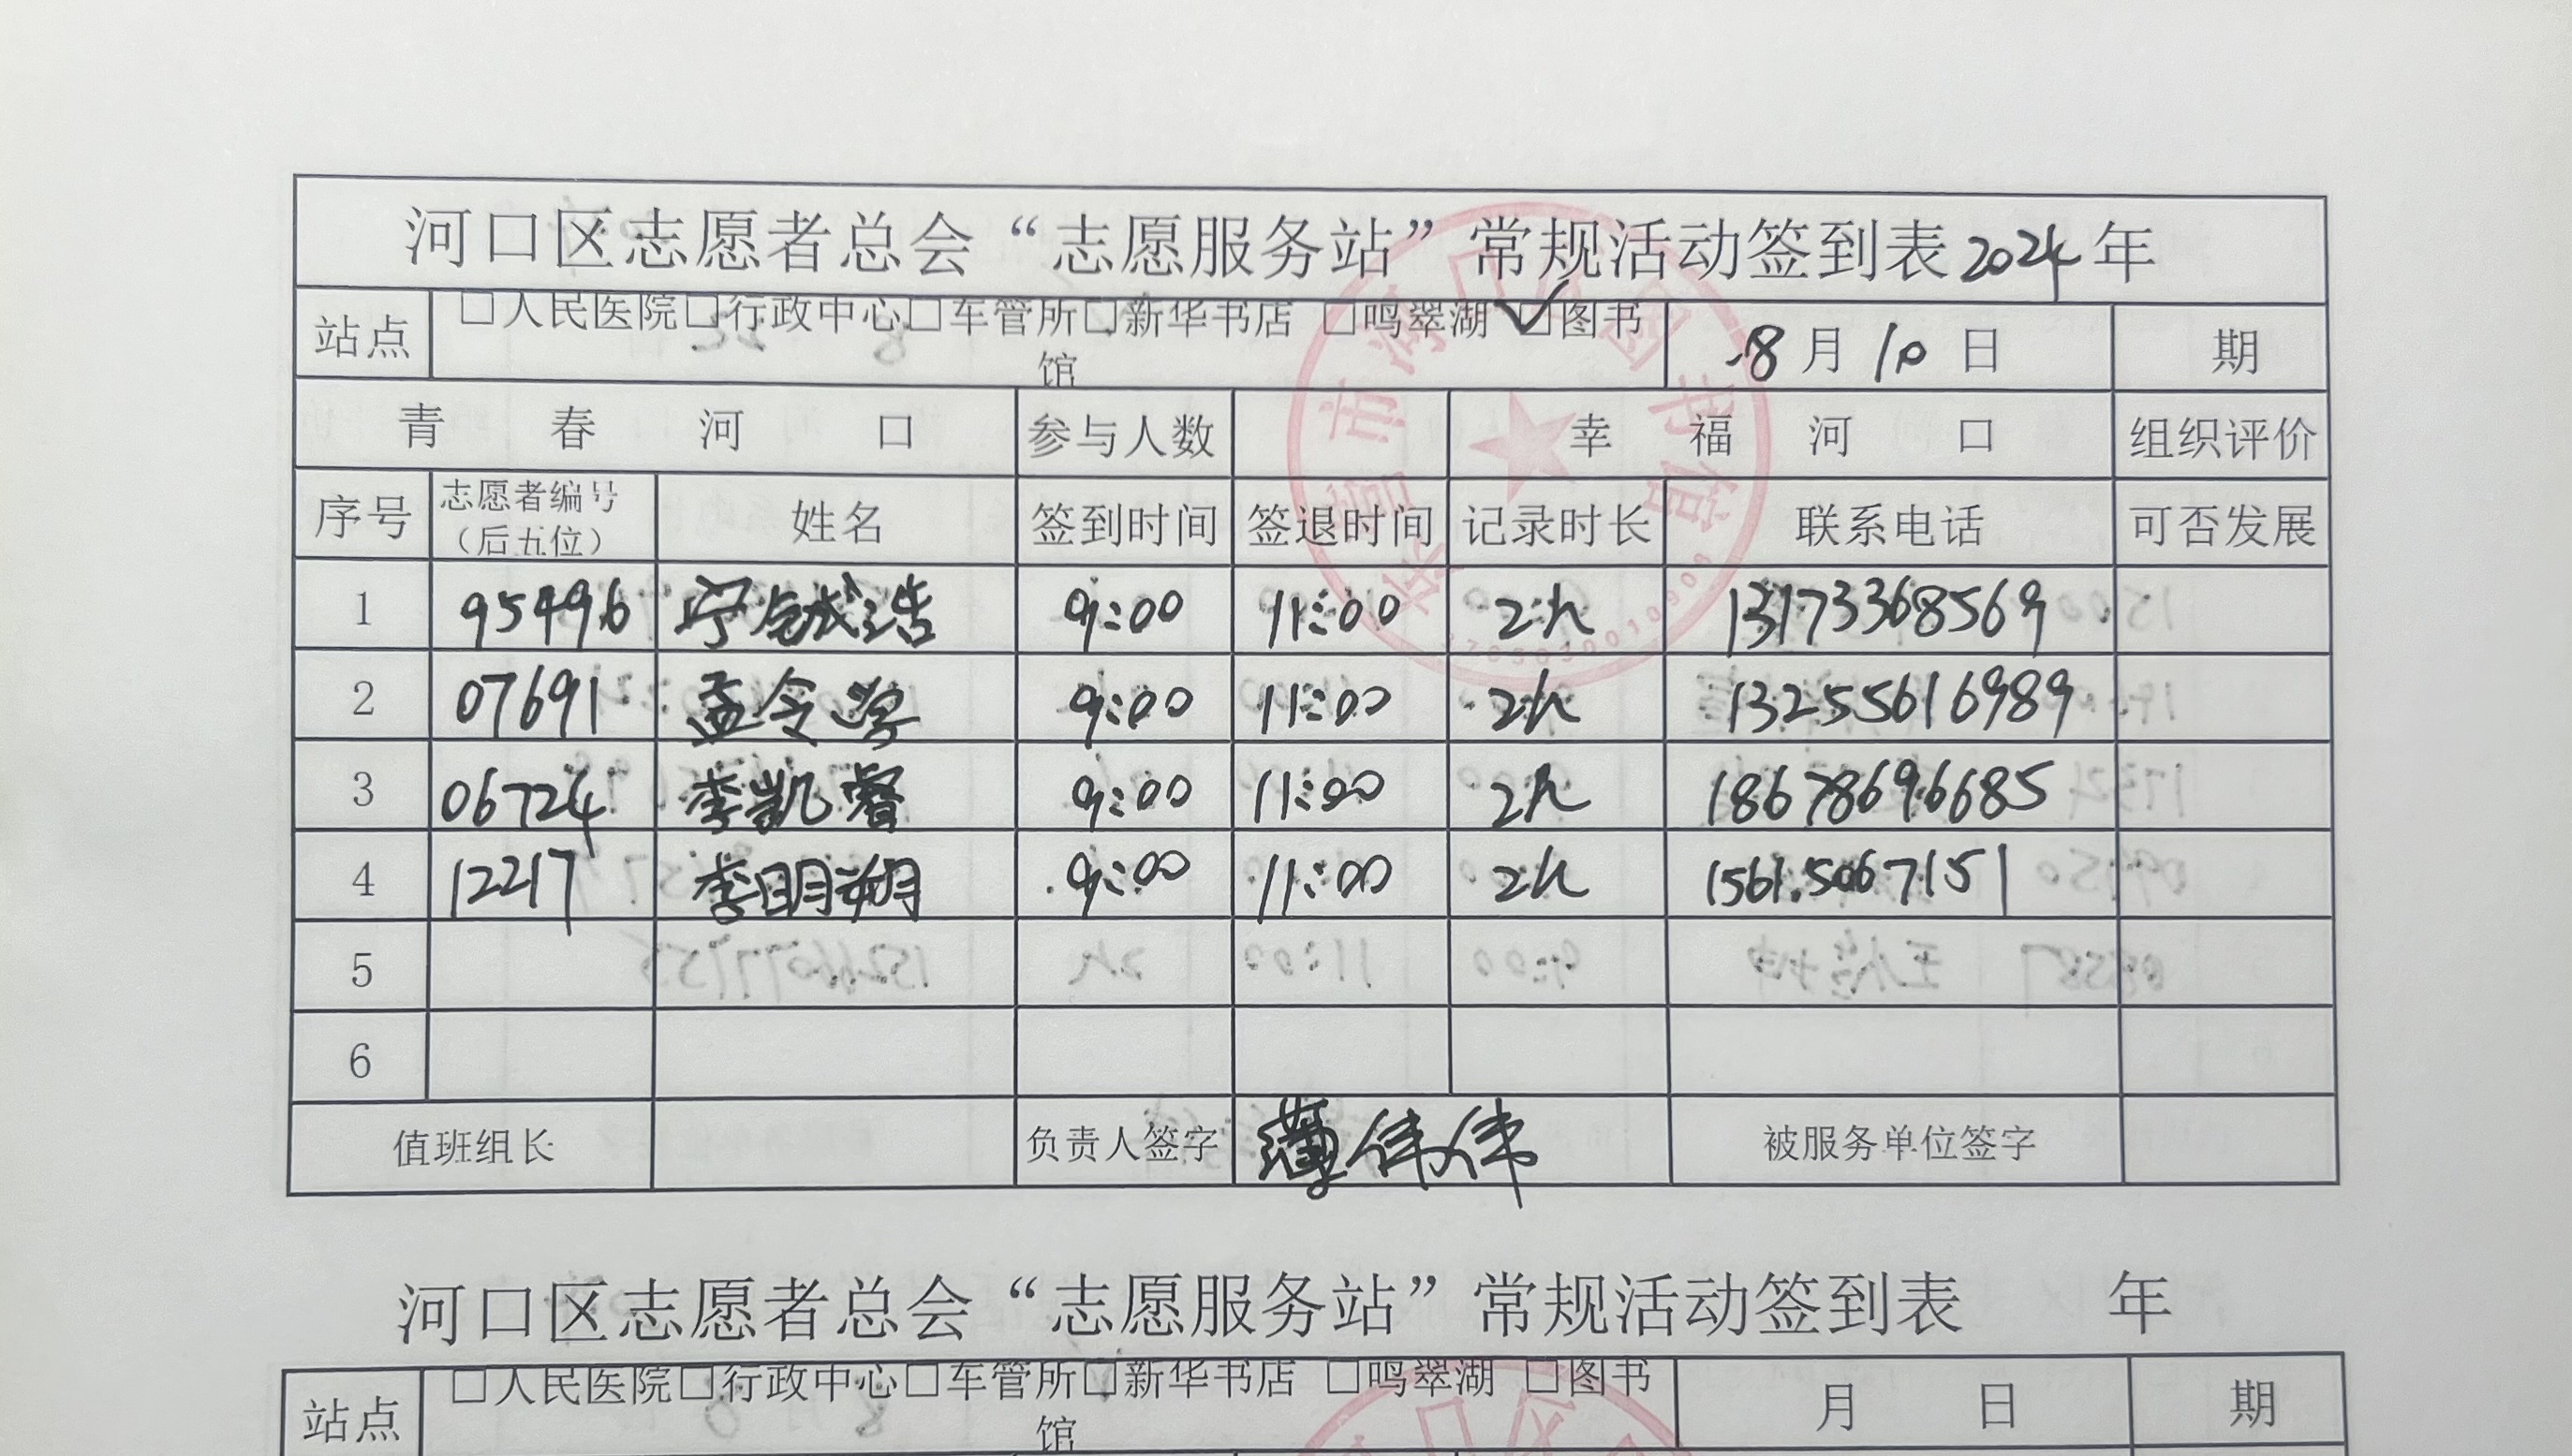 河口区志愿者总会“志愿服务站”常规活动签到表2024年
站点 □人民医院□行政中心□车管所□新华书店 □鸣翠湖 ☑图书馆 8月10日 期
青春河口 参与人数 幸福河口 组织评价
序号 志愿者编号（后五位） 姓名 签到时间 签退时间 记录时长 联系电话 可否发展
1 95496 宁铖浩 9:00 11:00 2h 13173368569
2 07691 孟令 9:00 11:00 2h 13255616989
3 06724 李凯睿 9:00 11:00 2h 18678696685
4 12217 李明朔 9:00 11:00 2h 15615067151
5
6
值班组长 负责人签字 薄伟伟 被服务单位签字
河口区志愿者总会“志愿服务站”常规活动签到表 年
站点 □人民医院□行政中心□车管所□新华书店 □鸣翠湖 □图书馆 月 日 期